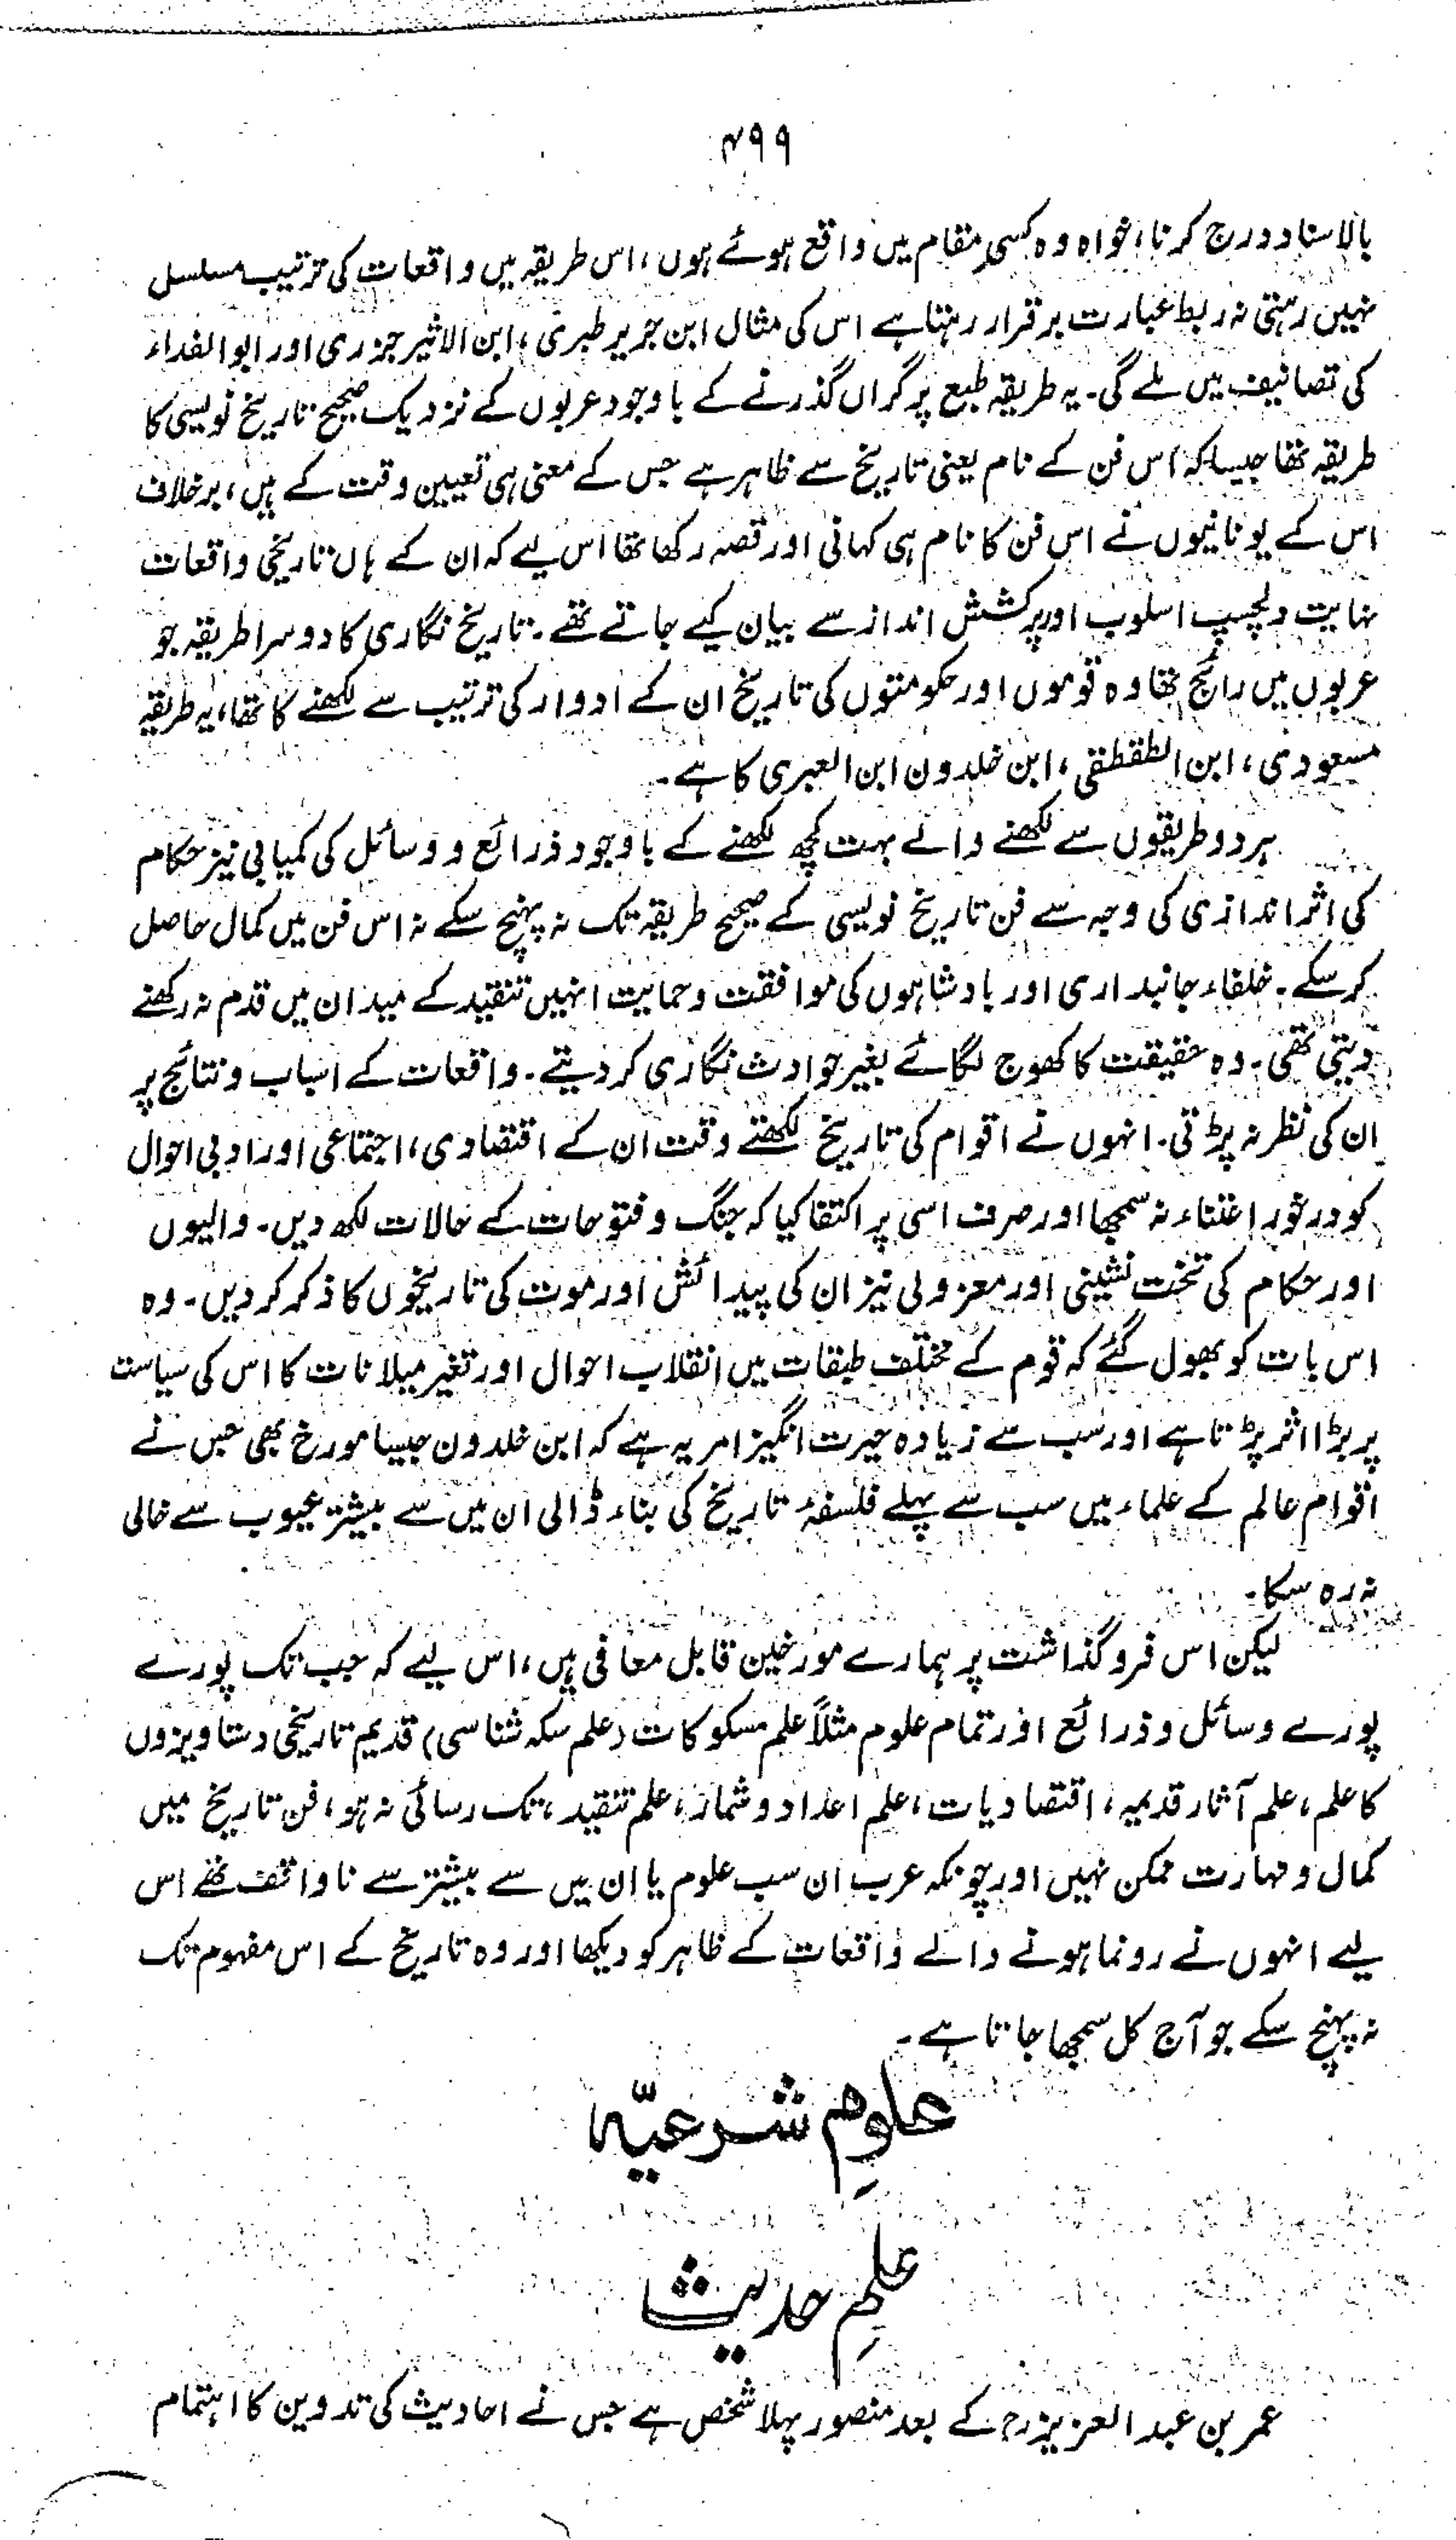 ۴۹۹
بالاسناد درج کرنا، خواہ وہ کسی مقام میں واقع ہوئے ہوں، اس طریقہ میں واقعات کی ترتیب مسلسل
نہیں رہتی نہ ربط عبارت برقرار رہتا ہے اس کی مثال ابن جریر طبری، ابن الاثیر جزری اور ابوالفداء
کی تصانیف میں ملے گی۔ یہ طریقہ طبع پر گراں گذرنے کے باوجود عربوں کے نزدیک صحیح تاریخ نویسی کا
طریقہ تھا جیسا کہ اس فن کے نام یعنی تاریخ سے ظاہر ہے جس کے معنی ہی تعیین وقت کے ہیں، برخلاف
اس کے یونانیوں نے اس فن کا نام ہی کہانی اور قصہ رکھا تھا اس لیے کہ ان کے ہاں تاریخی واقعات
نہایت دلچسپ اسلوب اور پرکشش انداز سے بیان کیے جاتے تھے۔ تاریخ نگاری کا دوسرا طریقہ جو
عربوں میں رائج تھا وہ قوموں اور حکومتوں کی تاریخ ان کے ادوار کی ترتیب سے لکھنے کا تھا، یہ طریقہ
مسعودی، ابن الطقطقی، ابن خلدون ابن العبری کا ہے۔
ہر دو طریقوں سے لکھنے والے بہت کچھ لکھنے کے باوجود ذرائع و وسائل کی کمیابی نیز حکام
کی اثر اندازی کی وجہ سے فن تاریخ نویسی کے صحیح طریقہ تک نہ پہنچ سکے نہ اس فن میں کمال حاصل
کر سکے۔ خلفاء جانبداری اور بادشاہوں کی موافقت و حمایت انہیں تنقید کے میدان میں قدم نہ رکھنے
دیتی تھی۔ وہ حقیقت کا کھوج لگائے بغیر حوادث نگاری کر دیتے۔ واقعات کے اسباب و نتائج پر
ان کی نظر نہ پڑتی۔ انہوں نے اقوام کی تاریخ لکھتے وقت ان کے اقتصادی، اجتماعی اور ادبی احوال
کو درخور اعتناء نہ سمجھا اور صرف اسی پر اکتفا کیا کہ جنگ و فتوحات کے حالات لکھ دیں۔ والیوں
اور حکام کی تخت نشینی اور معزولی نیز ان کی پیدائش اور موت کی تاریخوں کا ذکر کر دیں۔ وہ
اس بات کو بھول گئے کہ قوم کے مختلف طبقات میں انقلاب احوال اور تغیر میلانات کا اس کی سیاست
پر بڑا اثر پڑتا ہے اور سب سے زیادہ حیرت انگیز امر یہ ہے کہ ابن خلدون جیسا مورخ بھی جس نے
اقوام عالم کے علماء میں سب سے پہلے فلسفۂ تاریخ کی بناء ڈالی ان میں سے بیشتر عیوب سے خالی
نہ رہ سکا۔
لیکن اس فروگذاشت پر ہمارے مورخین قابل معافی ہیں، اس لیے کہ جب تک پورے
پورے وسائل و ذرائع اور تمام علوم مثلاً علم مسکوکات (علم سکہ شناسی) قدیم تاریخی دستاویزوں
کا علم، علم آثار قدیمہ، اقتصادیات، علم اعداد و شمار، علم تنقید، تک رسائی نہ ہو، فن تاریخ میں
کمال و مہارت ممکن نہیں اور چونکہ عرب ان سب علوم یا ان میں سے بیشتر سے ناواقف تھے اس
لیے انہوں نے رونما ہونے والے واقعات کے ظاہر کو دیکھا اور وہ تاریخ کے اس مفہوم تک
نہ پہنچ سکے جو آج کل سمجھا جاتا ہے۔
علومِ شرعیّہ
علمِ حدیث
عمر بن عبد العزیز رح کے بعد منصور پہلا شخص ہے جس نے احادیث کی تدوین کا اہتمام